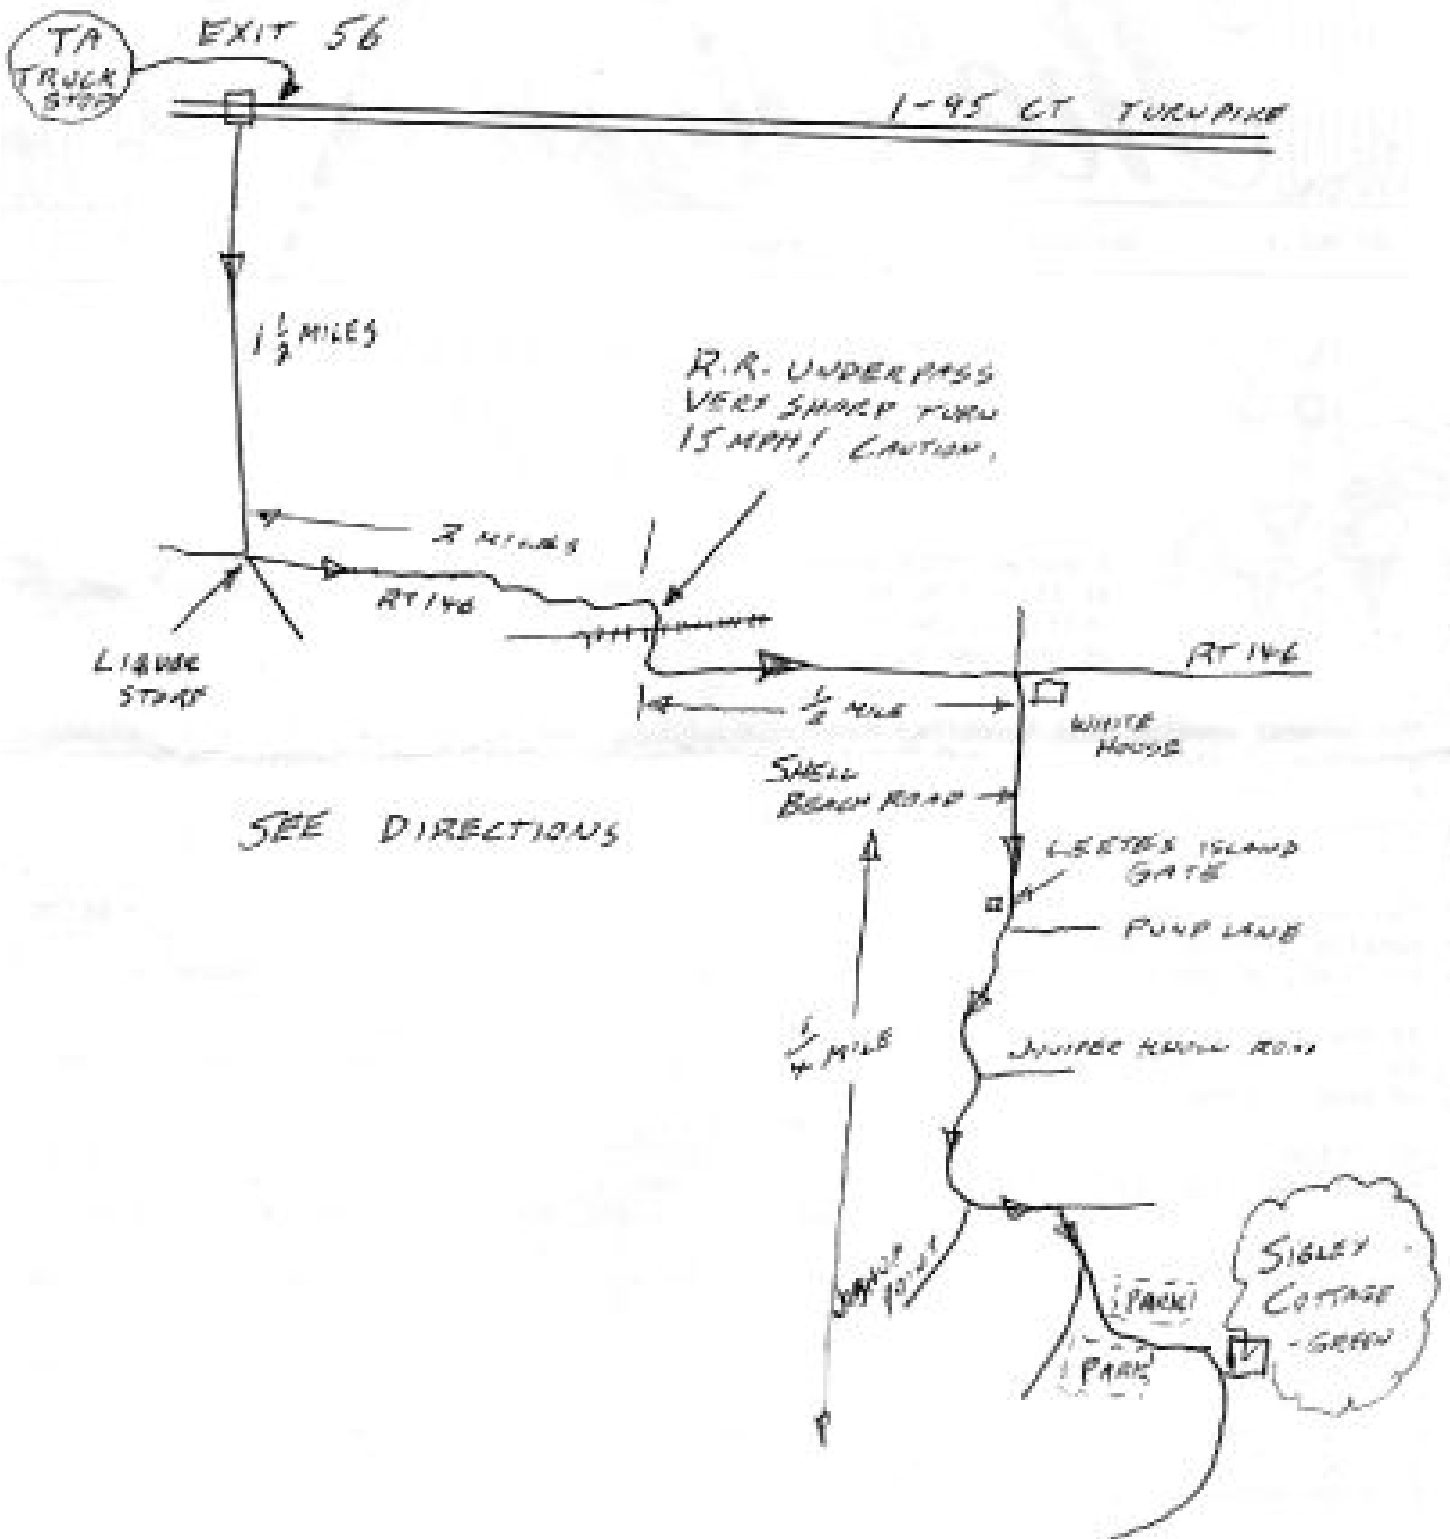 TA
TRUCK
STOP
EXIT 56
1-95 CT TURNPIKE
1 1/2 MILES
R.R. UNDERPASS
VERY SHARP TURN
15 MPH! CAUTION.
2 MILES
RT 146
LIQUOR
STORE
RT 146
1/2 MILE
WHITE
HOUSE
SHELL
BEACH ROAD
SEE DIRECTIONS
LEETES ISLAND
GATE
LANE
1/4 MILE
JUNIPER KNOLL ROAD
POINT
COTTAGE
- GREEN
PARK
PARK